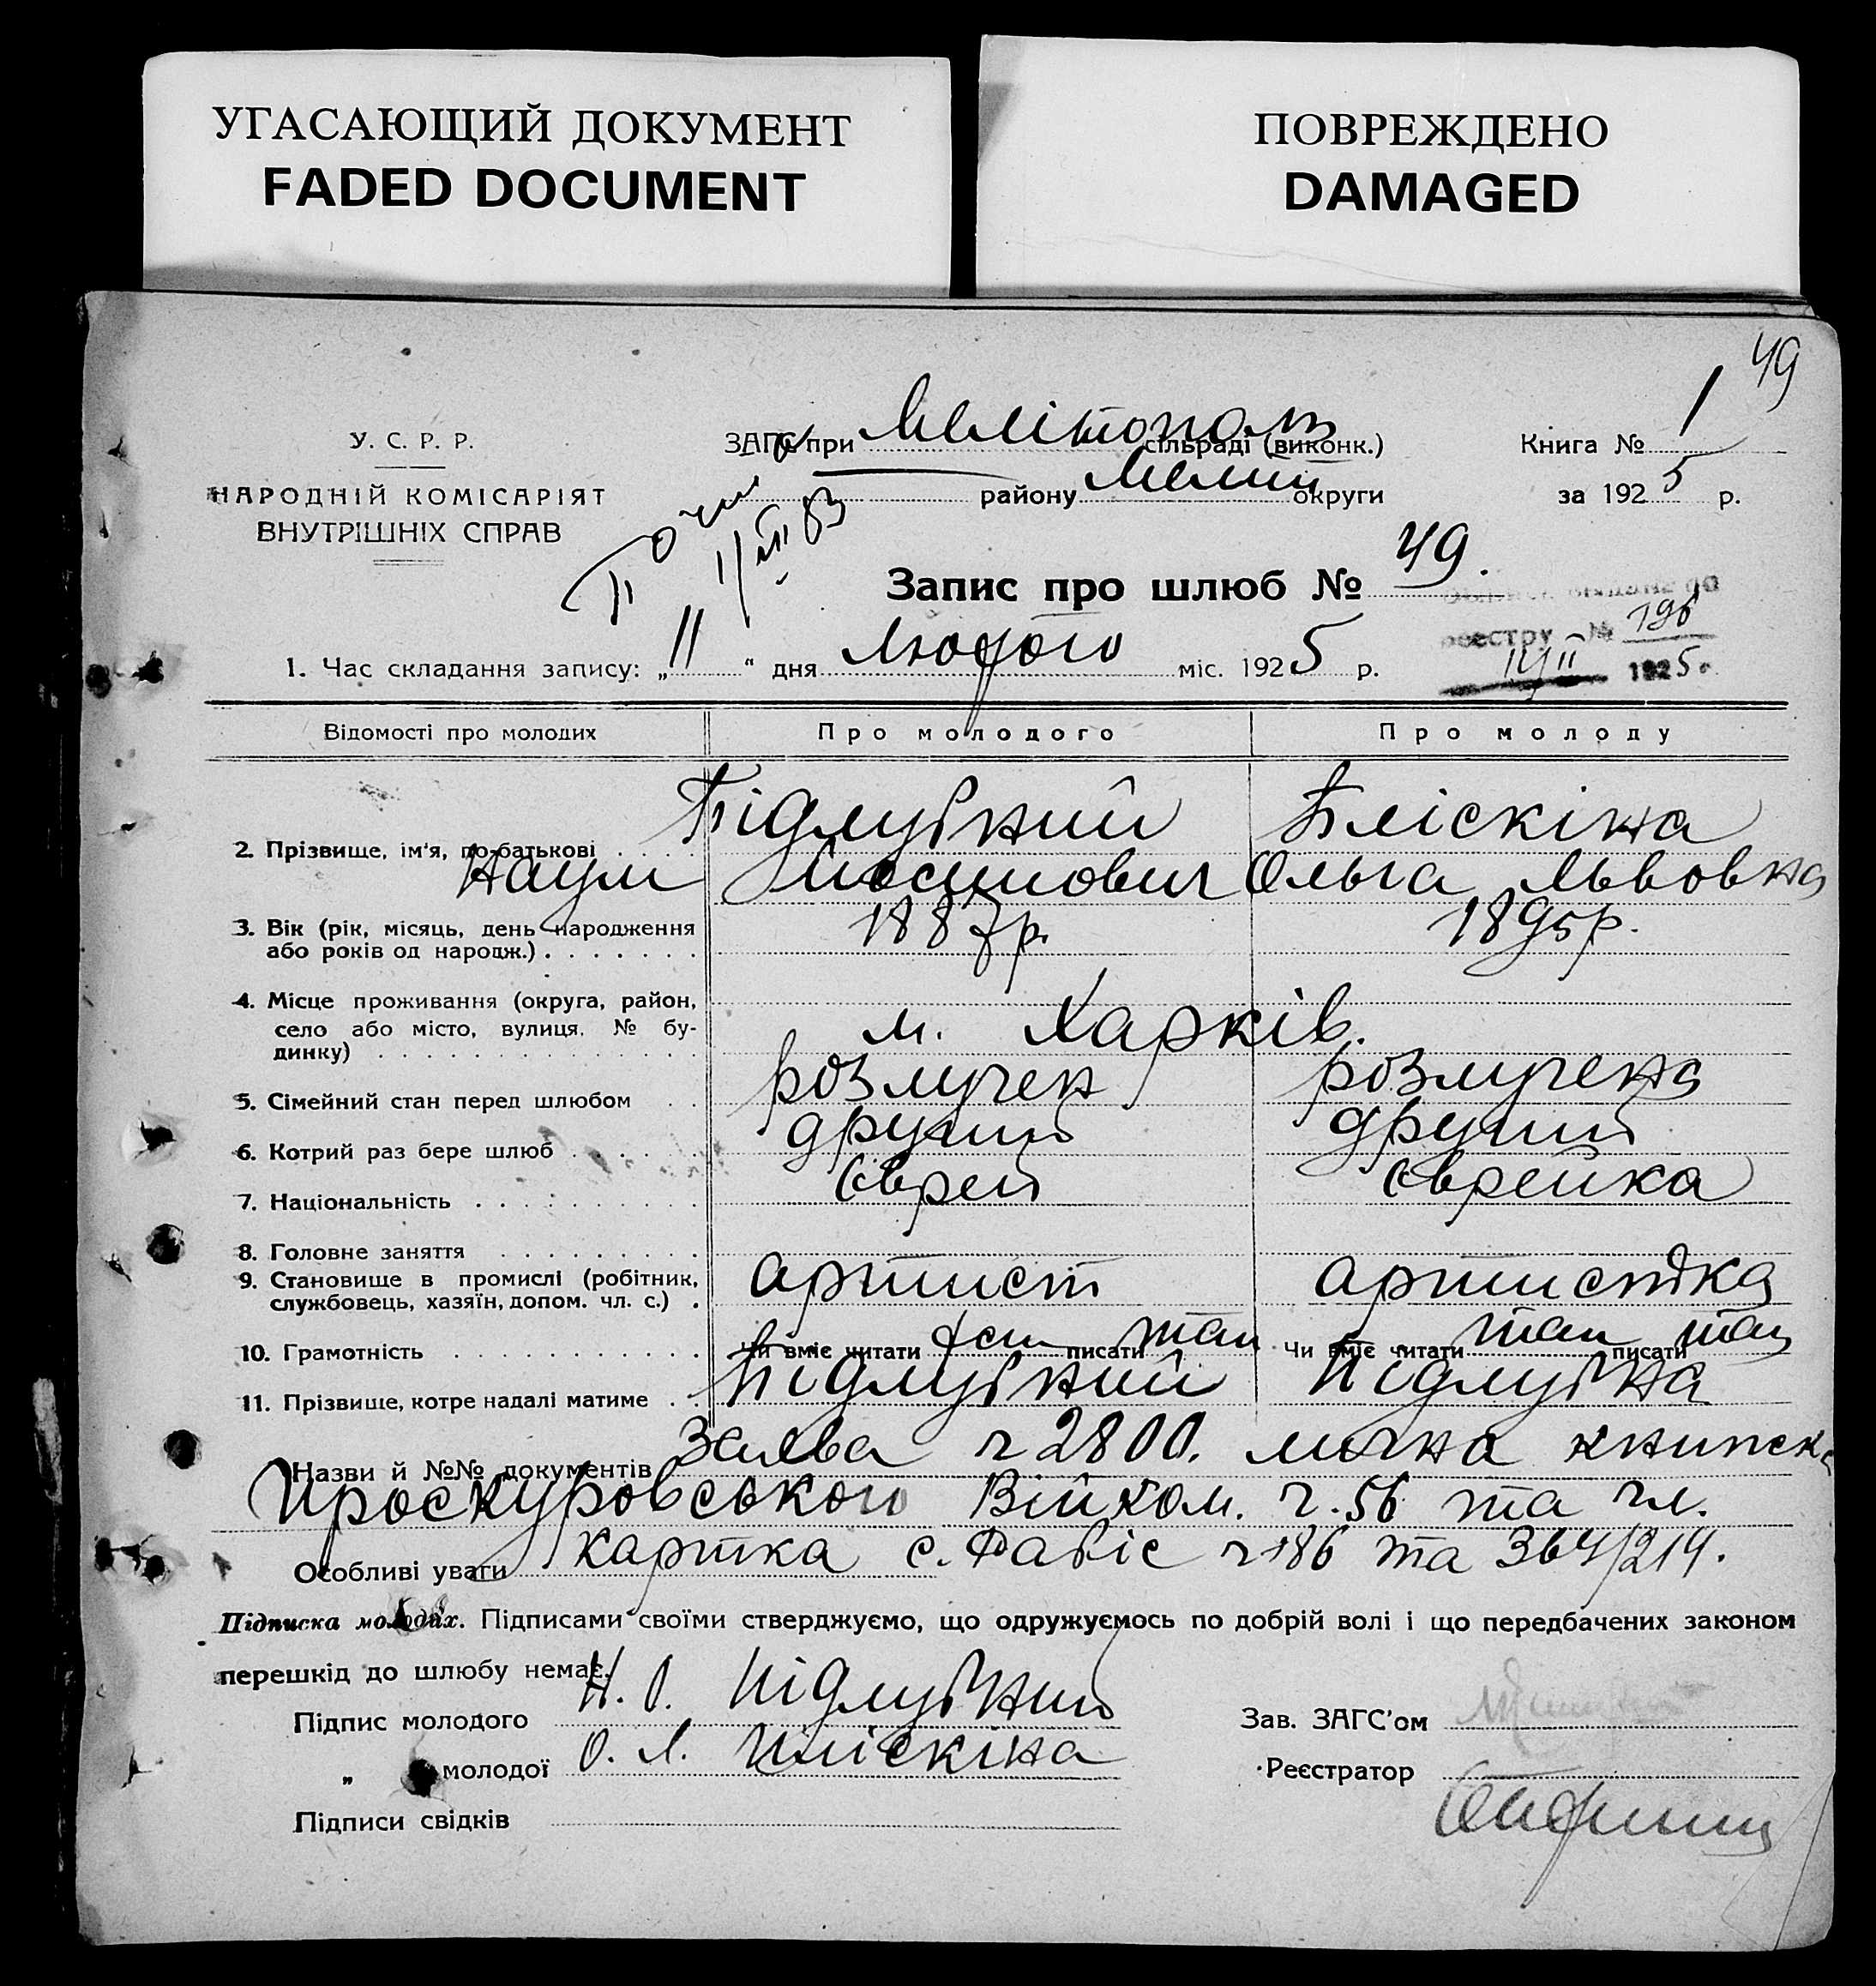 УГАСАЮЩИЙ ДОКУМЕНТ
FADED DOCUMENT
ПОВРЕЖДЕНО
DAMAGED
49
У. С. Р. Р.
НАРОДНІЙ КОМІСАРІЯТ
ВНУТРІШНІХ СПРАВ
ЗАГС при Мелітополь сільраді (виконк.)
району Меліт округи
Книга № 1
за 1925 р.
Запис про шлюб № 49.
реєстру № 196
11/II 1925 г.
1. Час складання запису: „11“ дня Лютого міс. 1925 р.
Відомості про молодих
Про молодого
Про молоду
2. Прізвище, ім'я, по-батькові
Підлубний
Наум Йосипович
Пліскіна
Ольга Львовна
3. Вік (рік, місяць, день народження або років од народж.)
1887р.
1895р.
4. Місце проживання (округа, район, село або місто, вулиця, № будинку)
м. Харків.
5. Сімейний стан перед шлюбом
розлучен
розлучена
6. Котрий раз бере шлюб
другий
другий
7. Національність
Єврей
Єврейка
8. Головне заняття
9. Становище в промислі (робітник, службовець, хазяїн, допом. чл. с.)
артист
артистка
10. Грамотність
Чи вміє читати писати так
Чи вміє читати так писати так
11. Прізвище, котре надалі матиме
Підлубний
Підлубна
Назви й №№ документів Заява ч 2800. лична книжка
Проскуровського Війком. ч. 56 та чл.
Особливі уваги картка с. Рабіс ч 186 та 364/214.
Підписка молодих. Підписами своїми стверджуємо, що одружуємось по добрій волі і що передбачених законом
перешкід до шлюбу немає.
Підпис молодого Н. О. Підлубний
„ молодої О. Л. Пліскіна
Підписи свідків
Зав. ЗАГС'ом
Реєстратор